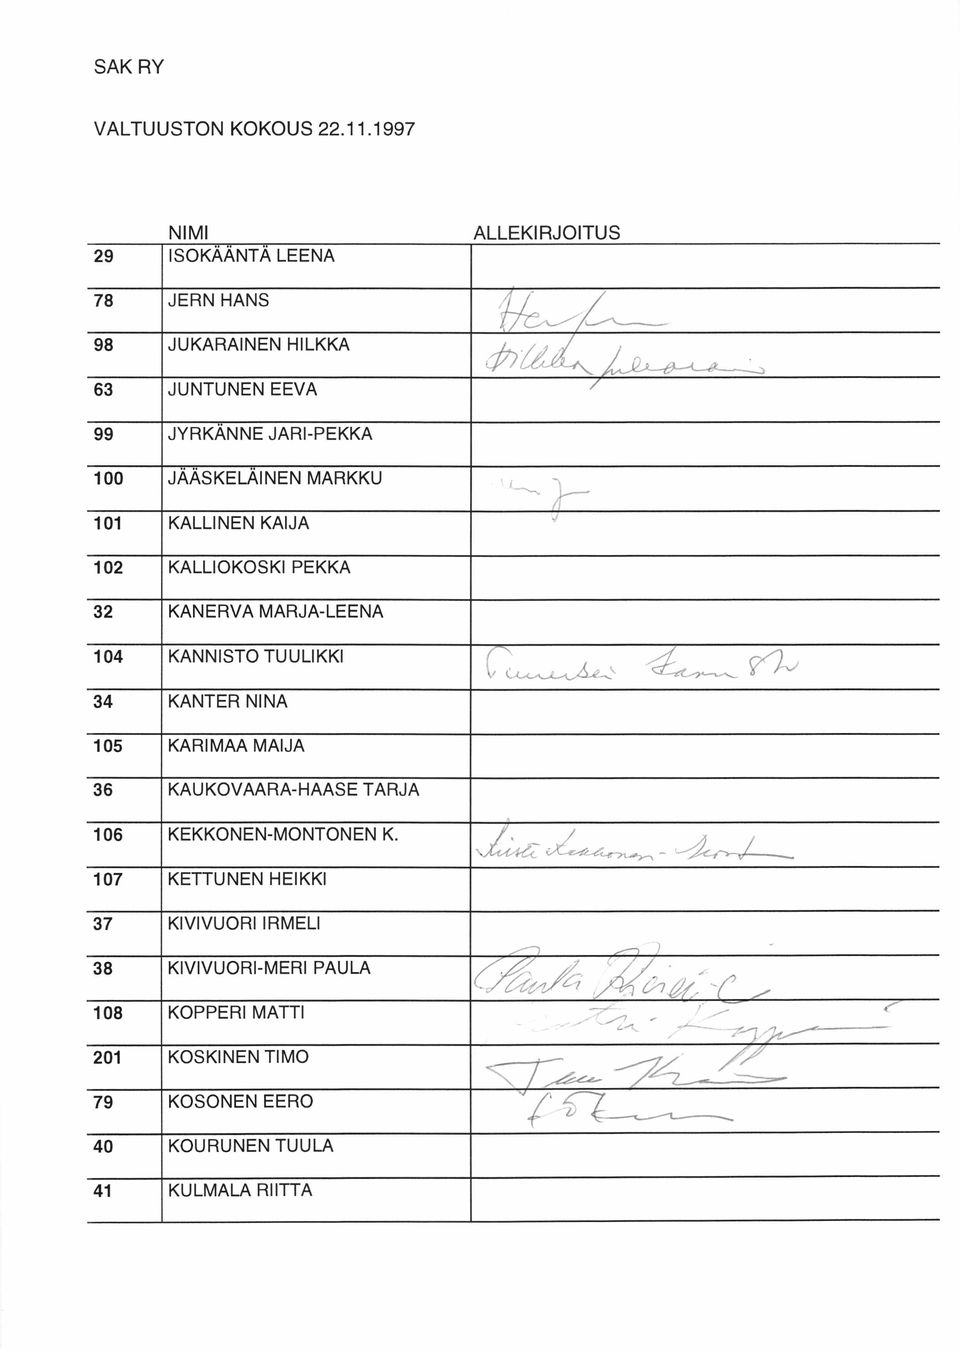 SAK RY
VALTUUSTON KOKOUS 22.11.1997
NIMI ALLEKIRJOITUS
29 ISOKÄÄNTÄ LEENA
78 JERN HANS
98 JUKARAINEN HILKKA Hilkka Jukarainen
63 JUNTUNEN EEVA
99 JYRKÄNNE JARI-PEKKA
100 JÄÄSKELÄINEN MARKKU
101 KALLINEN KAIJA
102 KALLIOKOSKI PEKKA
32 KANERVA MARJA-LEENA
104 KANNISTO TUULIKKI
34 KANTER NINA
105 KARIMAA MAIJA
36 KAUKOVAARA-HAASE TARJA
106 KEKKONEN-MONTONEN K.
107 KETTUNEN HEIKKI
37 KIVIVUORI IRMELI
38 KIVIVUORI-MERI PAULA Paula
108 KOPPERI MATTI
201 KOSKINEN TIMO
79 KOSONEN EERO
40 KOURUNEN TUULA
41 KULMALA RIITTA